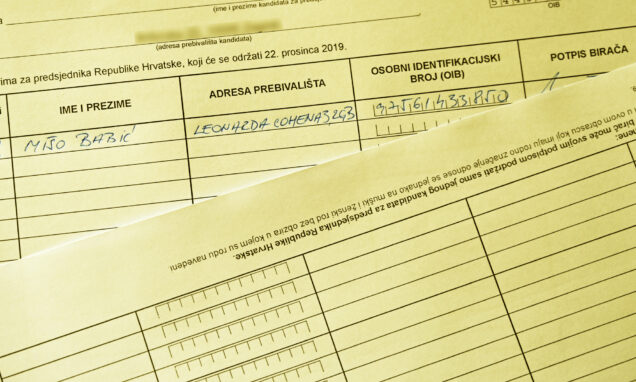 (ime i prezime kandidata za predsj
OIB
(adresa prebivališta kandidata)
ima za predsjednika Republike Hrvatske, koji će se održati 22. prosinca 2019.
IME I PREZIME
ADRESA PREBIVALIŠTA
OSOBNI IDENTIFIKACIJSKI
BROJ (OIB)
POTPIS BIRAČA
MIŠO BABIĆ
LEONARDA COHENA
birač može svojim potpisom podržati samo jednog kandidata za predsjednika Republike Hrvatske.
u ovom obrascu koji imaju rodno značenje odnose se jednako na muški i ženski rod bez obzira u kojem su rodu navedeni